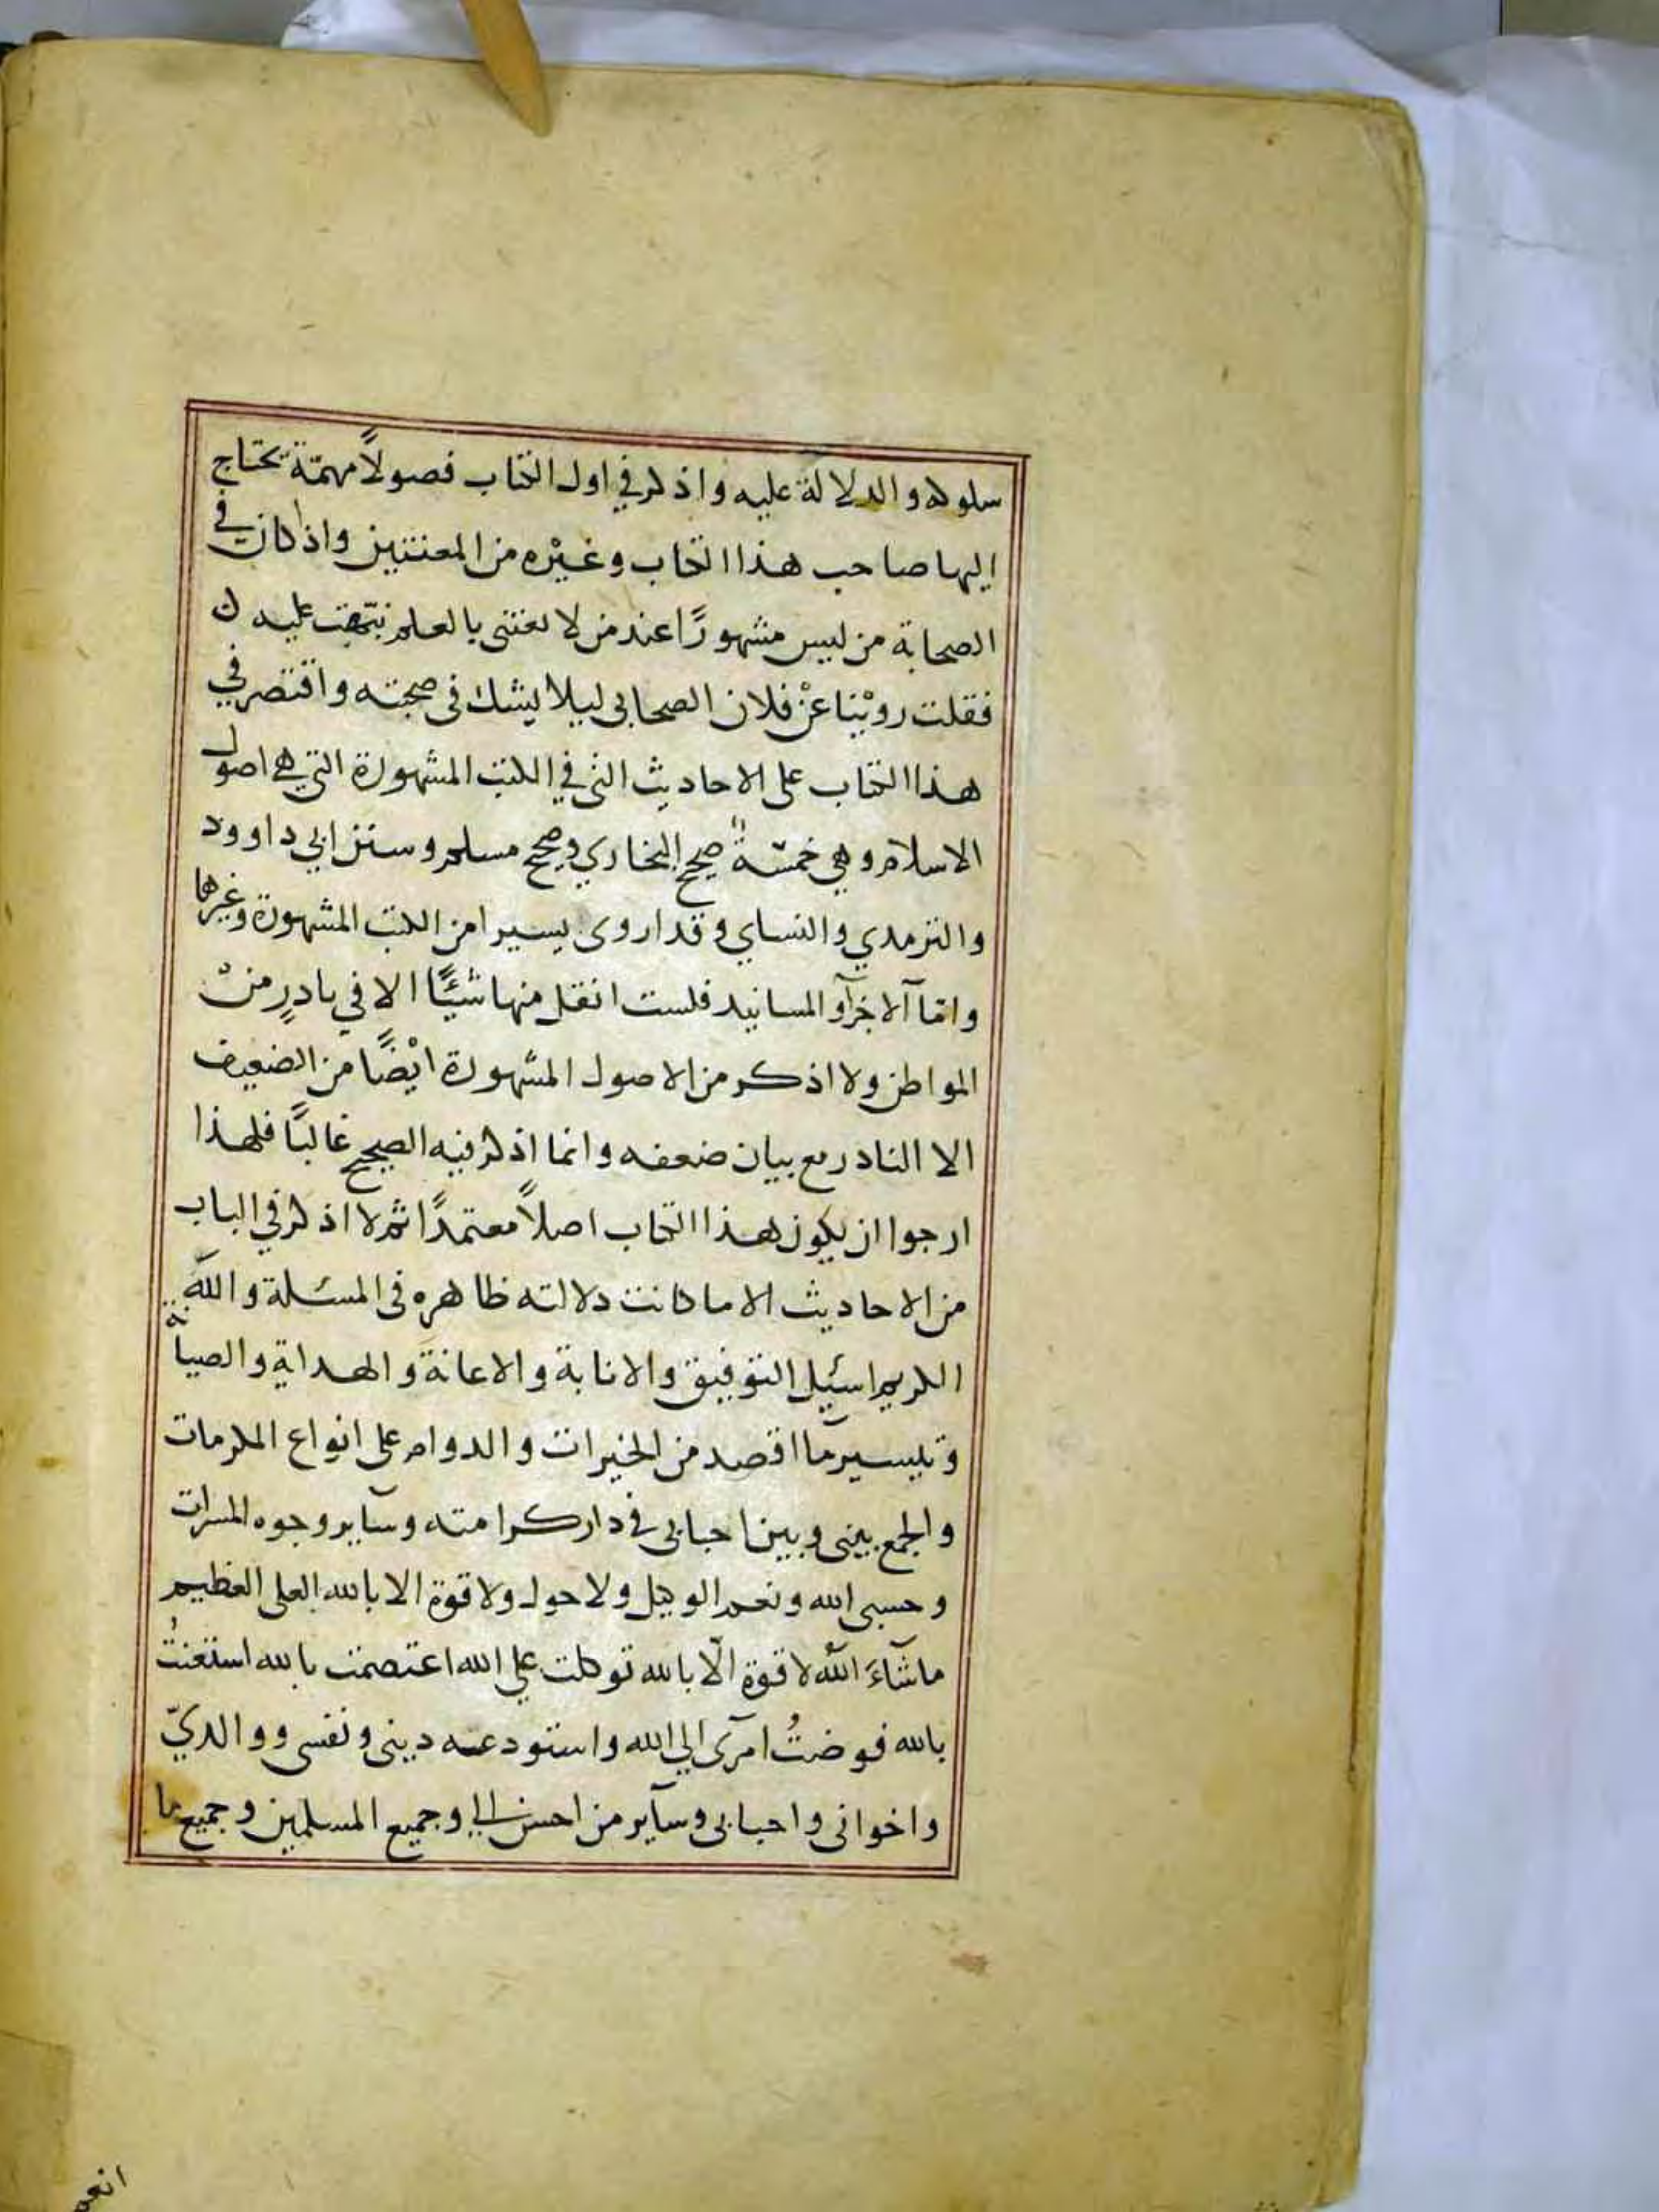 سلوكه والدلالة عليه واذكر في اول الكتاب فصولاً مهمّة يحتاج
اليها صاحب هذا الكتاب وغيره من المعتنين واذا كان في
الصحابة من ليس مشهورًا عند من لا يعتني بالعلم نبّهت عليه
فقلت رويْنا عنْ فلان الصحابي ليلا يشك في صحبته واقتصر في
هذا الكتاب على الاحاديث التي في الكتب المشهورة التي هي اصول
الاسلام وهي خمسة صحيح البخاري وصحيح مسلم وسنن ابي داوود
والترمدي والنساي وقد اروى يسيرا من الكتب المشهورة وغيرها
وامّا الاجزآ والمسانيد فلست انقل منها شيئًا الا في نادرٍ منْ
المواطن ولا اذكر من الاصول المشهورة ايْضًا من الضعيف
الا النادر مع بيان ضعفه وانما اذكر فيه الصحيح غالبًا فلهذا
ارجوا ان يكون هذا الكتاب اصلاً معتمدًا ثم لا اذكر في الباب
من الاحاديث الا ما كانت دلالته ظاهره في المسئلة والله
الكريم اسئيل التوفيق والانابة والاعانة والهداية والصيانة
وتيسير ما اقصد من الخيرات والدوام على انواع المكرمات
والجمع بيني وبين احبابي في دار كرامته وسآير وجوه المسرات
وحسبي الله ونعم الوكيل ولا حول ولا قوة الا بالله العلى العظيم
ما شآءَ اللهُ لا قوة الّا بالله توكلت على الله اعتصمت بالله استعنتُ
بالله فوضتُ امرى الى الله واستودعه ديني ونفسي ووالديّ
واخواني واحبابي وسآير من احسن الى وجميع المسلمين وجميع ما
انعم